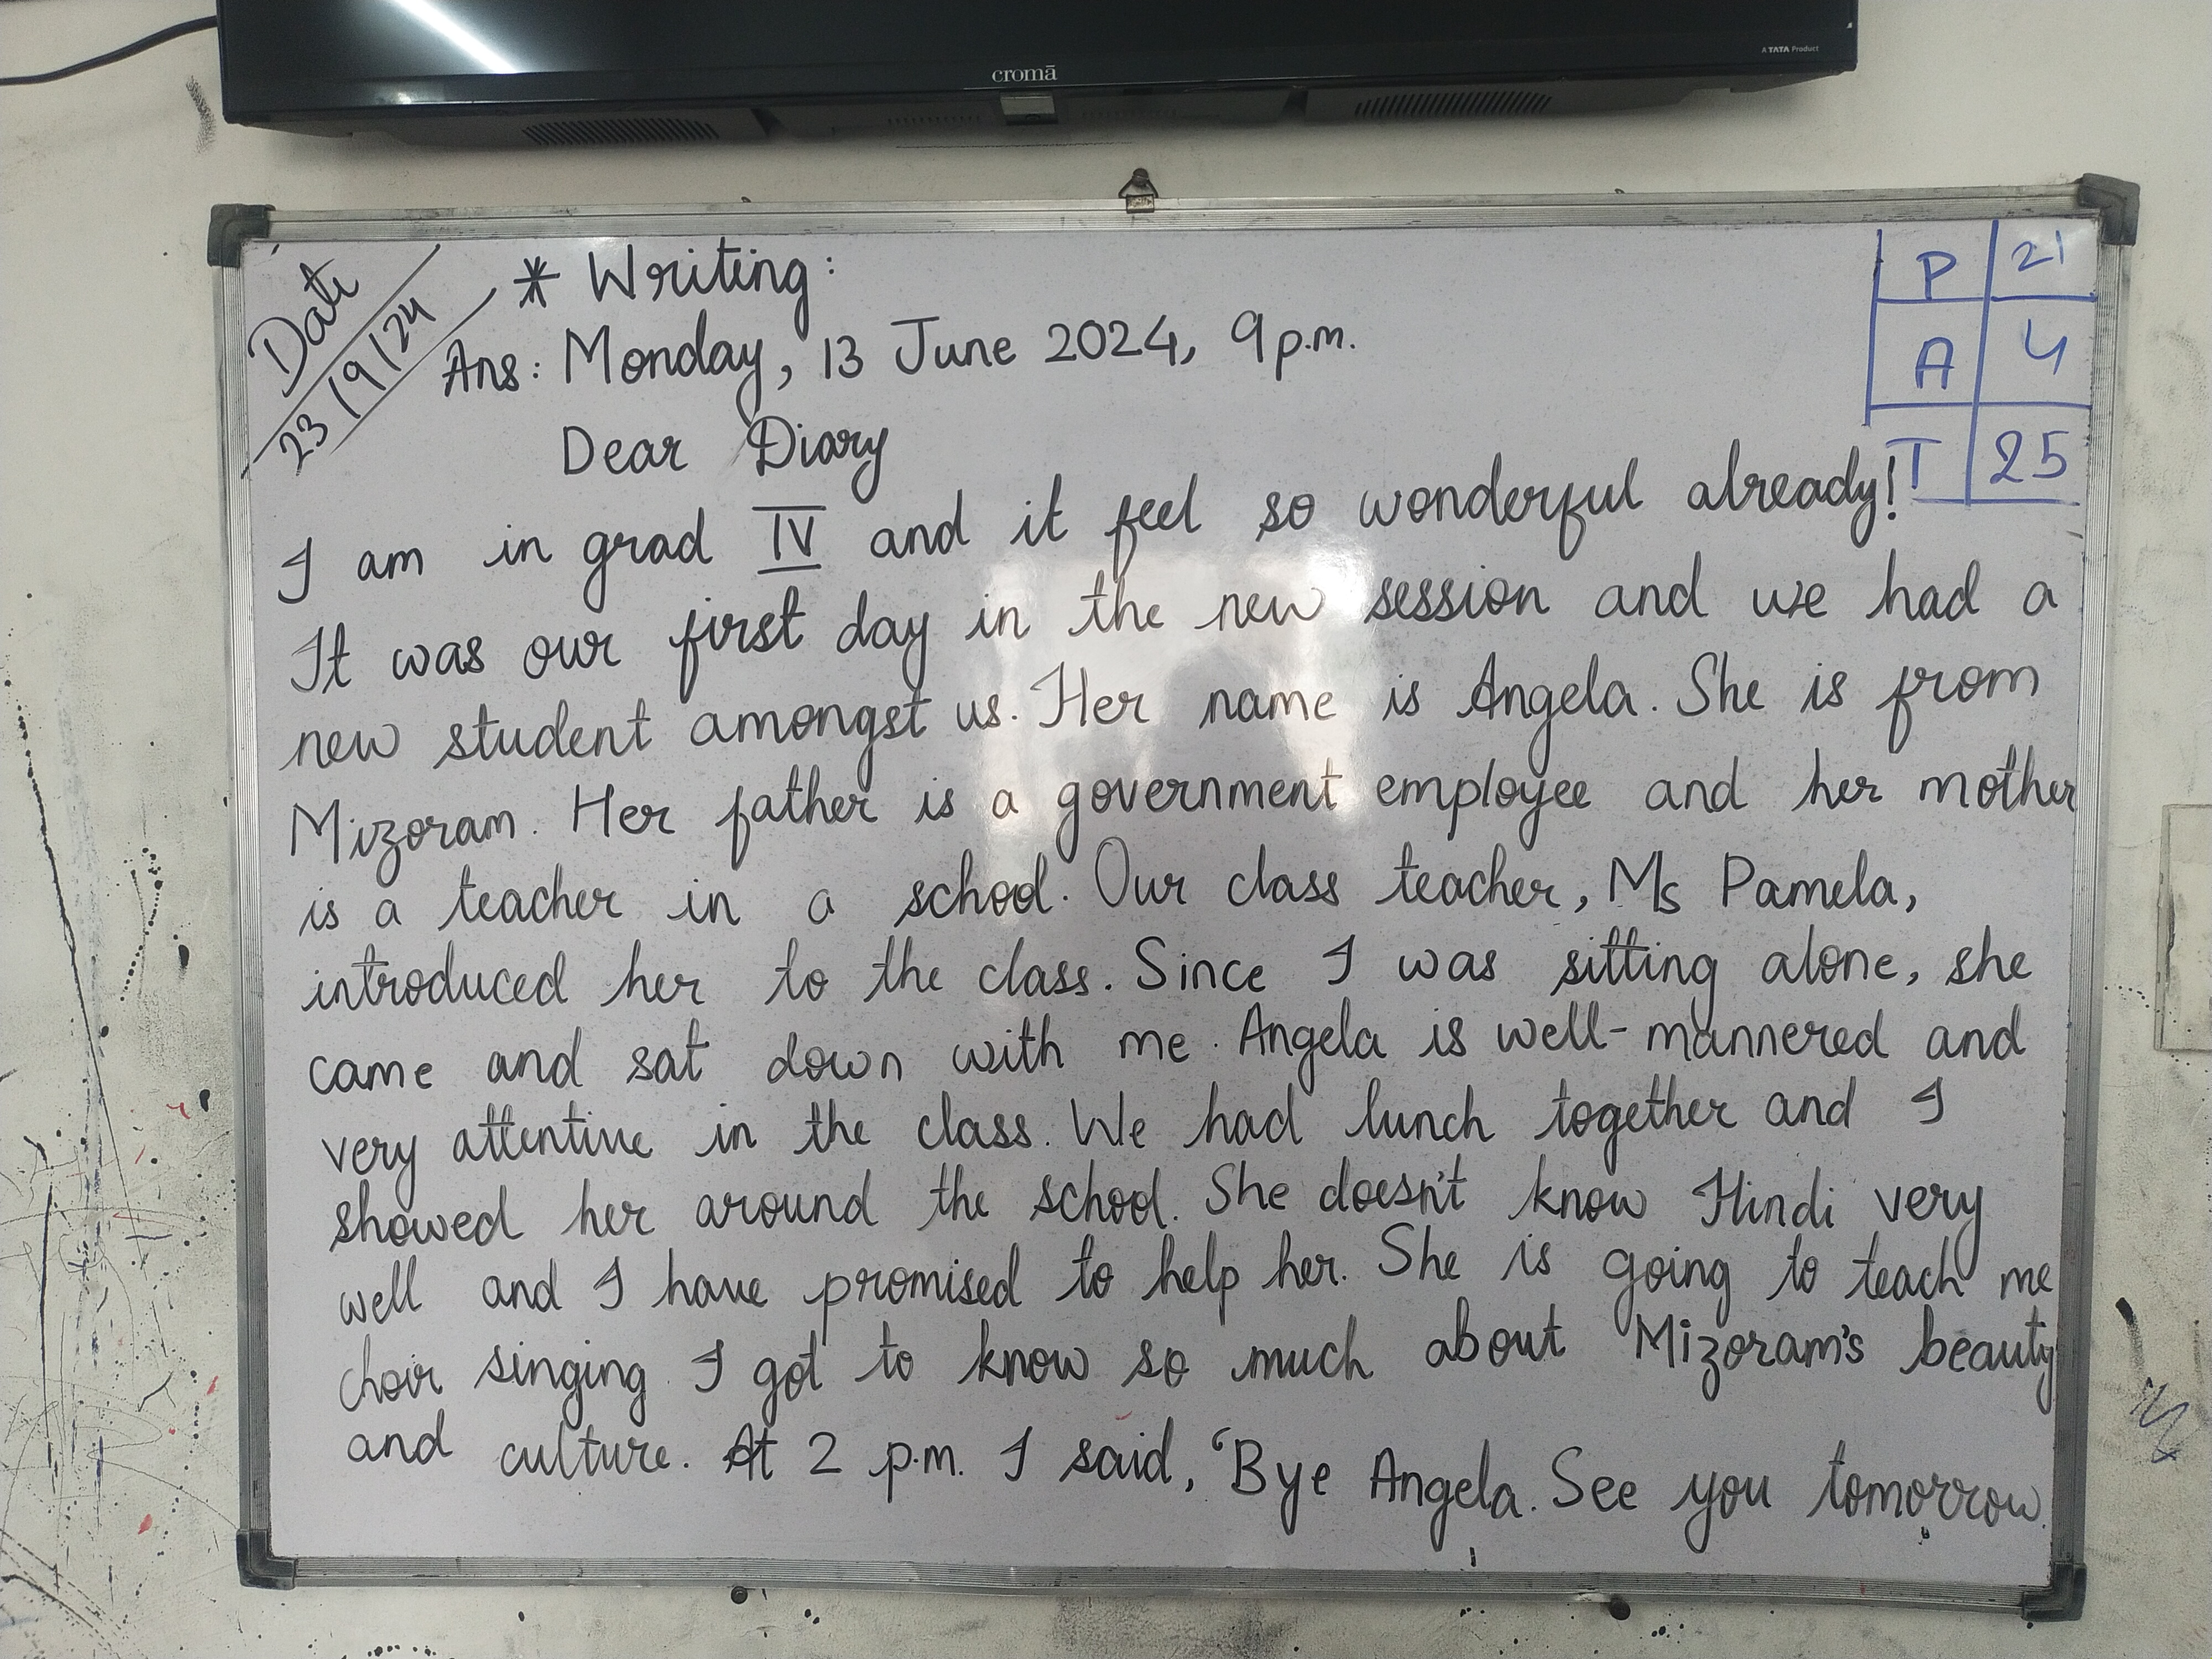 cromā
A TATA Product
Date
23/9/24
* Writing:
P 21
A 4
T 25
Ans: Monday, 13 June 2024, 9 p.m.
Dear Diary
I am in grad IV and it feel so wonderful already!
It was our first day in the new session and we had a
new student amongst us. Her name is Angela. She is from
Mizoram. Her father is a government employee and her mother
is a teacher in a school. Our class teacher, Ms Pamela,
introduced her to the class. Since I was sitting alone, she
came and sat down with me. Angela is well-mannered and
very attentive in the class. We had lunch together and I
showed her around the school. She doesn't know Hindi very
well and I have promised to help her. She is going to teach me
choir singing. I got to know so much about Mizoram's beauty
and culture. At 2 p.m. I said, 'Bye Angela. See you tomorrow.